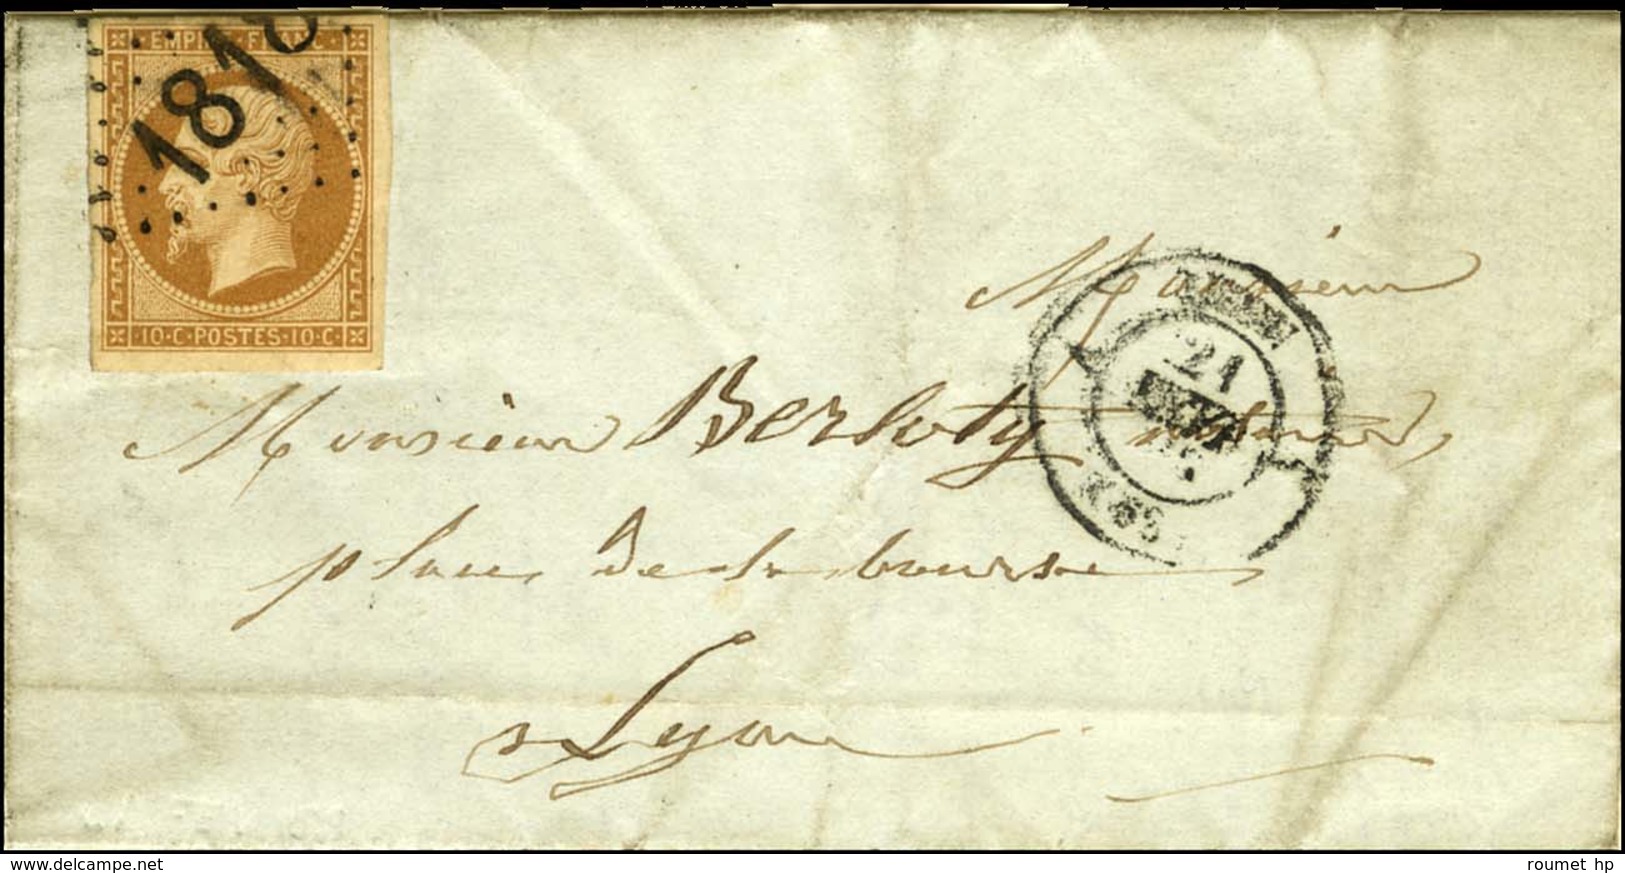 EMPIRE FRANC
1818
10·C·POSTES·10·C·
Monsieur
21
Monsieur Berloty notaire,
place de la bourse
Lyon
www.delcampe.net
roumet hp